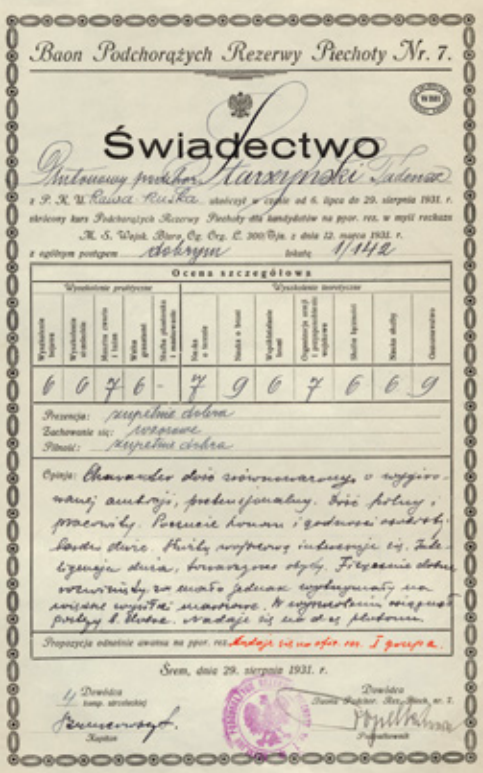 Baon Podchorążych Rezerwy Piechoty Nr. 7.
Świadectwo
Plutonowy podchor. Starzyński Tadeusz
z P. K. U. Rawa Ruska ukończył w czasie od 6. lipca do 29. sierpnia 1931. r.
skrócony kurs Podchorążych Rezerwy Piechoty dla kandydatów na ppor. rez. w myśl rozkazu
M. S. Wojsk. Biuro Og. Org. L. 300/Tjn. z dnia 12. marca 1931. r.
z ogólnym postępem dobrym lokatą 1/142
Ocena szczegółowa
Wyszkolenie praktyczne Wyszkolenie teoretyczne
Wyszkolenie bojowe
Wyszkolenie strzeleckie
Musztra zwarta i luźna
Walka granatami
Służba pionierska i maskowanie
Nauka o terenie
Nauka o broni
Współdziałanie broni
Organizacja armji i przysposobienie wojskowe
Służba łączności
Nauka służby
Gazoznawstwo
6 6 7 6 - 7 9 6 7 6 6 9
Prezencja: zupełnie dobra
Zachowanie się: wzorowe
Pilność: zupełnie dobra
Opinja: Charakter dość zrównoważony, o wygóro-
wanej ambicji, pretensjonalny. Dość pilny i
pracowity. Poczucie honoru i godności osobistej
bardzo duże. Służbą wojskową interesuje się. Inte-
ligencja duża, towarzysko obyty. Fizycznie dobrze
rozwinięty, za mało jednak wytrzymały na
większe wysiłki marszowe. W wyszkoleniu osiągnął
postępy b. dobre. Nadaje się na d-cę plutonu.
Propozycja odnośnie awansu na ppor. rez. Nadaje się na ofic. rez. I grupa.
Śrem, dnia 29. sierpnia 1931. r.
4 Dowódca
komp. strzeleckiej
Kapitan
Dowódca
Baonu Podchor. Rez. Piech. nr. 7.
Podpułkownik